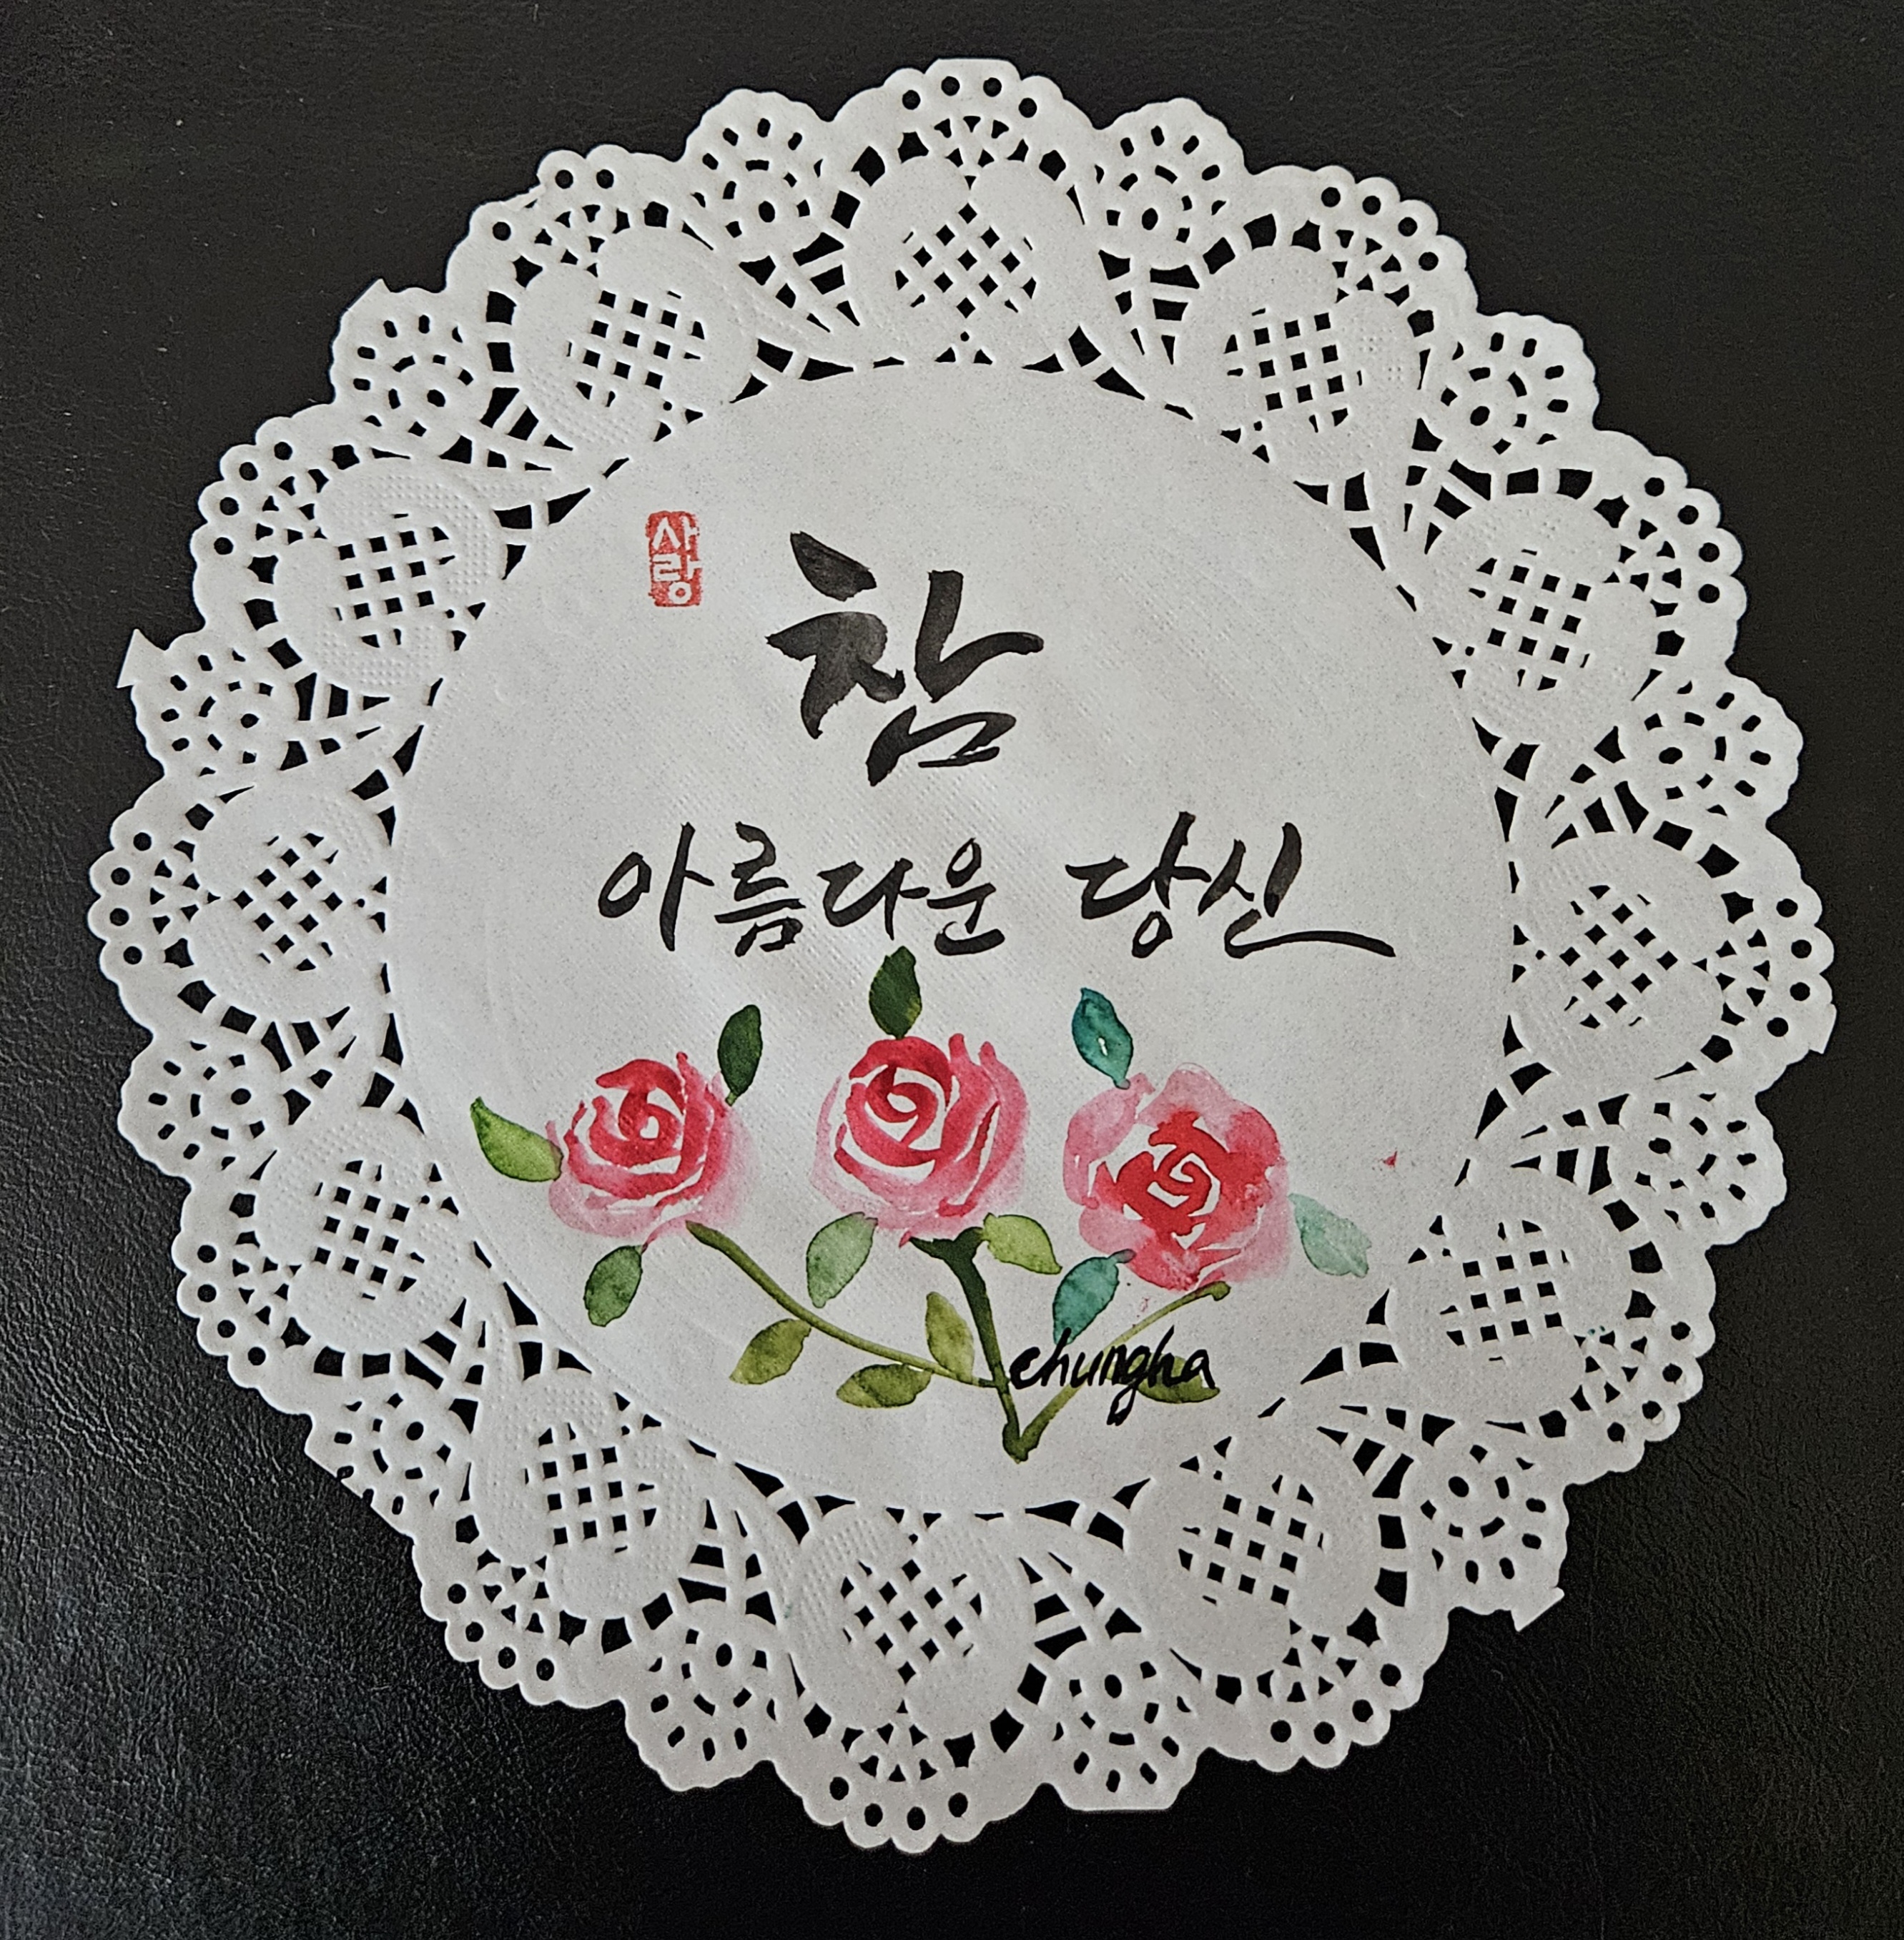 사랑
참
아름다운 당신
chungha